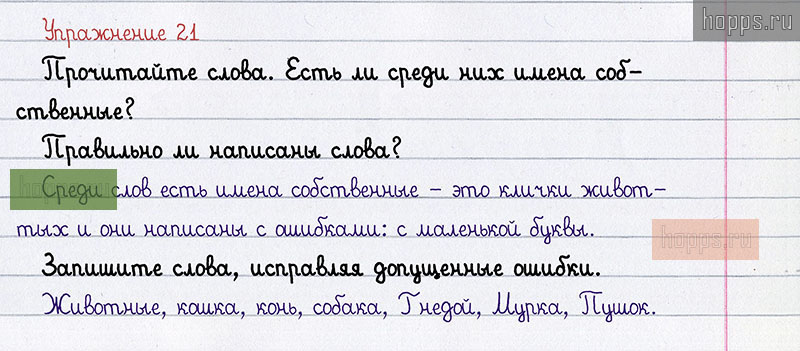 hopps.ru
Упражнение 21
Прочитайте слова. Есть ли среди них имена соб–
ственные?
Правильно ли написаны слова?
hopps.ru
Среди слов есть имена собственные – это клички живот–
тых и они написаны с ошибками: с маленькой буквы.
hopps.ru
Запишите слова, исправляя допущенные ошибки.
Животные, кошка, конь, собака, Гнедой, Мурка, Пушок.